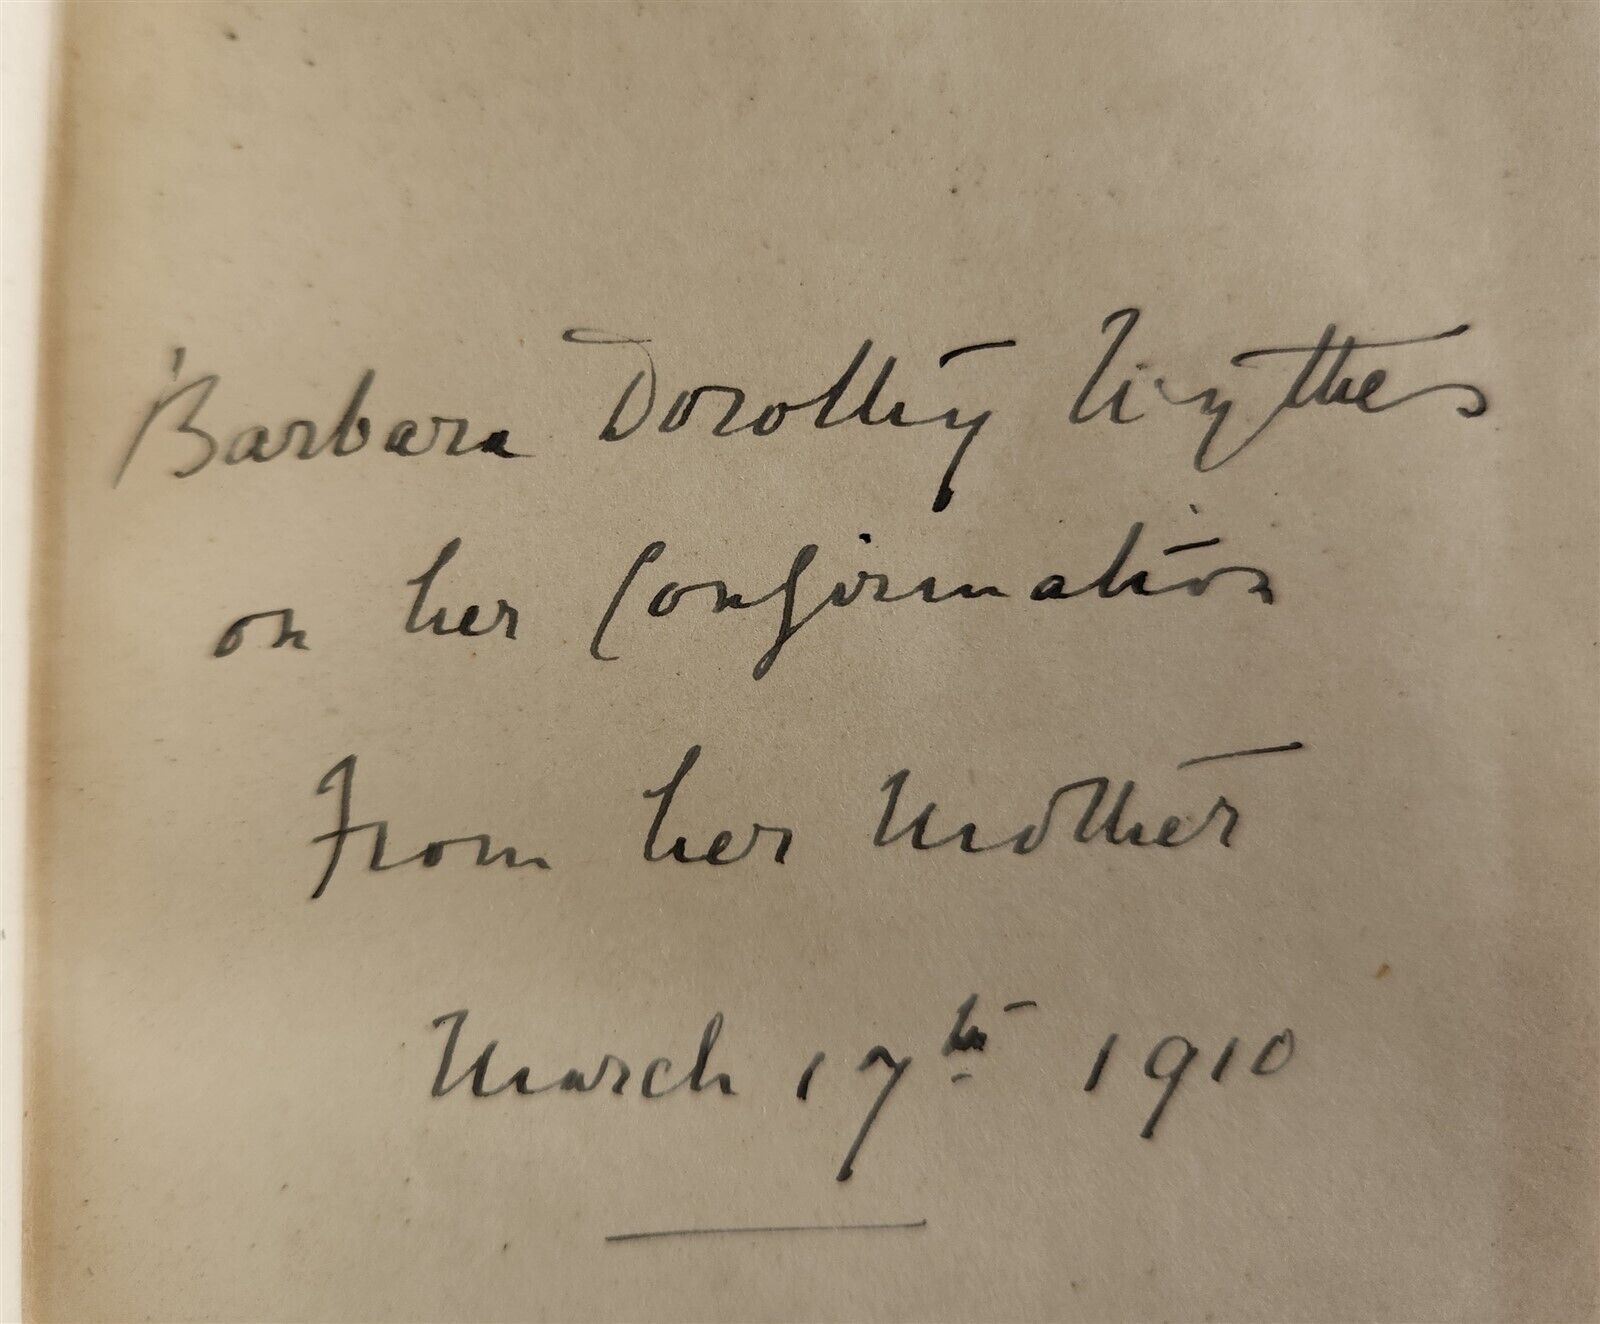 Barbara Dorothy Wythes
on her Confirmation
From her Mother
March 17th 1910